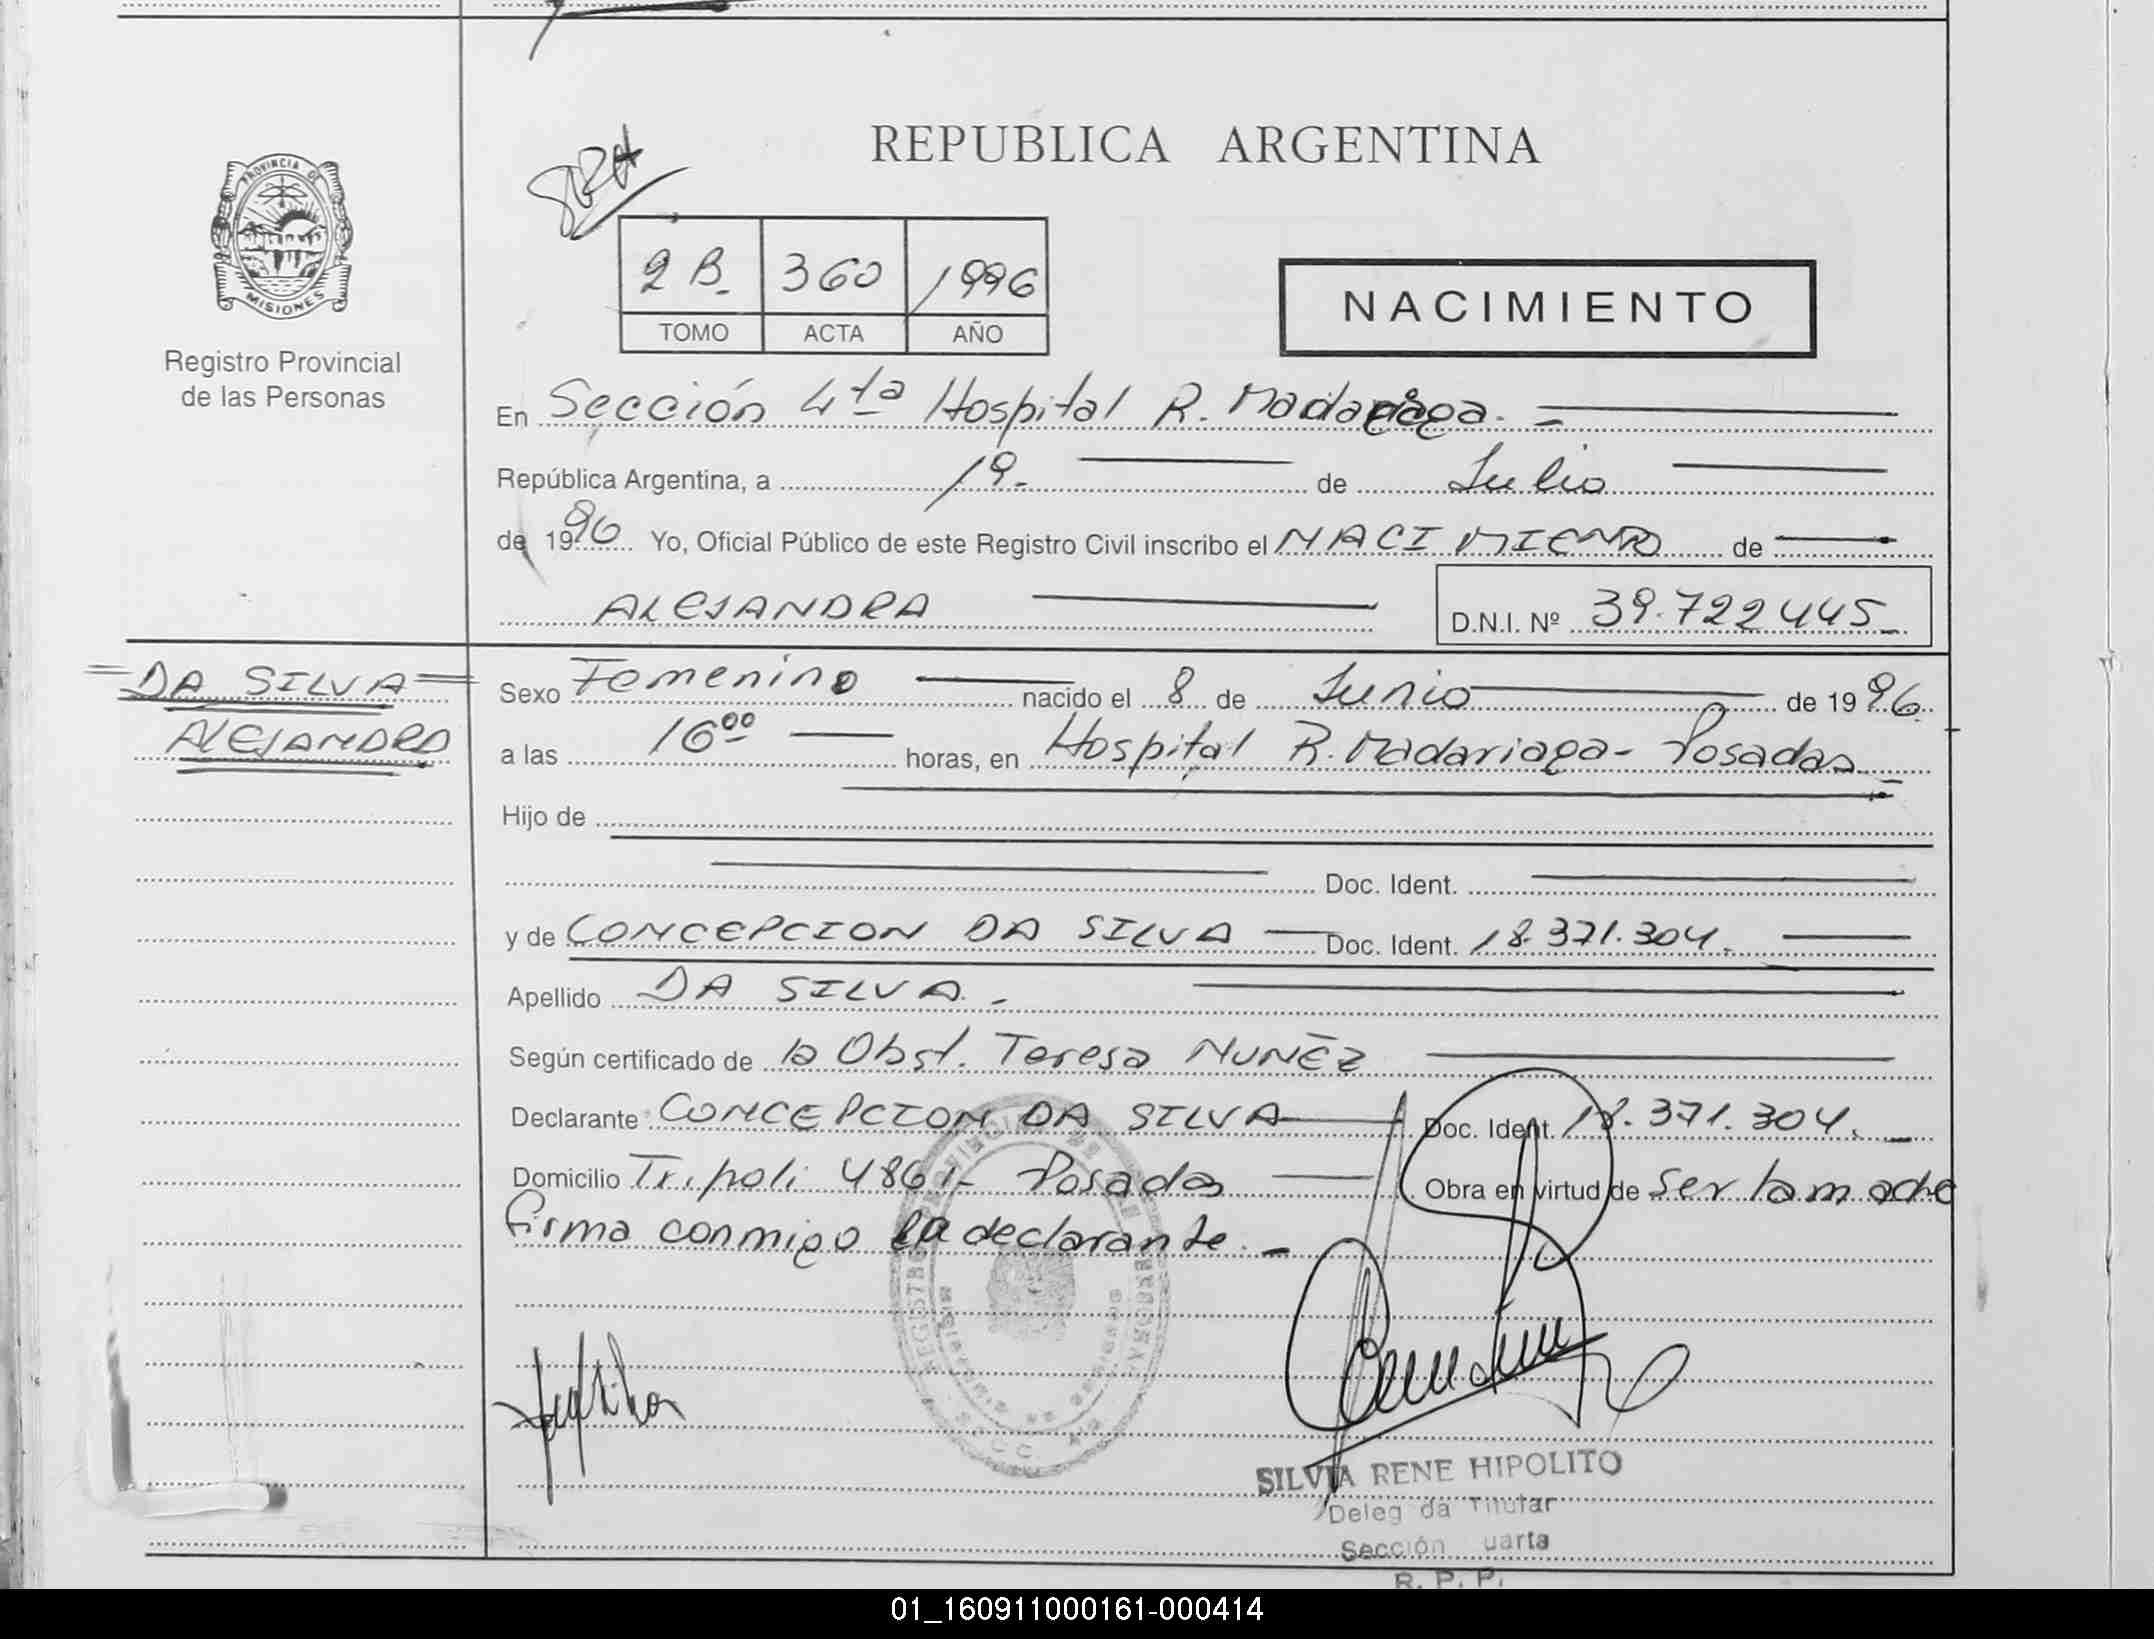 REPUBLICA ARGENTINA
PROVINCIA DE
MISIONES
Registro Provincial
de las Personas
2 B. 360 1996
TOMO ACTA AÑO
NACIMIENTO
En Sección 4ta Hospital R. Madariaga. -
República Argentina, a 19- de Julio
de 1996 Yo, Oficial Público de este Registro Civil inscribo el NACIMIENTO de
ALEJANDRA D.N.I. Nº 39.722445-
=DA SILVA=
ALEJANDRA
Sexo Femenino nacido el 8 de Junio de 1996.
a las 16⁰⁰ horas, en Hospital R. Madariaga- Posadas-
Hijo de
Doc. Ident.
y de CONCEPCION DA SILVA Doc. Ident. 18.371.304.
Apellido DA SILVA. -
Según certificado de la Obst. Teresa NUNEZ
Declarante CONCEPCION DA SILVA Doc. Ident. 18.371.304. -
Domicilio Tripoli 4861- Posadas Obra en virtud de ser la madre
firma conmigo la declarante. -
SILVIA RENE HIPOLITO
Deleg da Titular
Sección uarta
R. P. P.
01_160911000161-000414